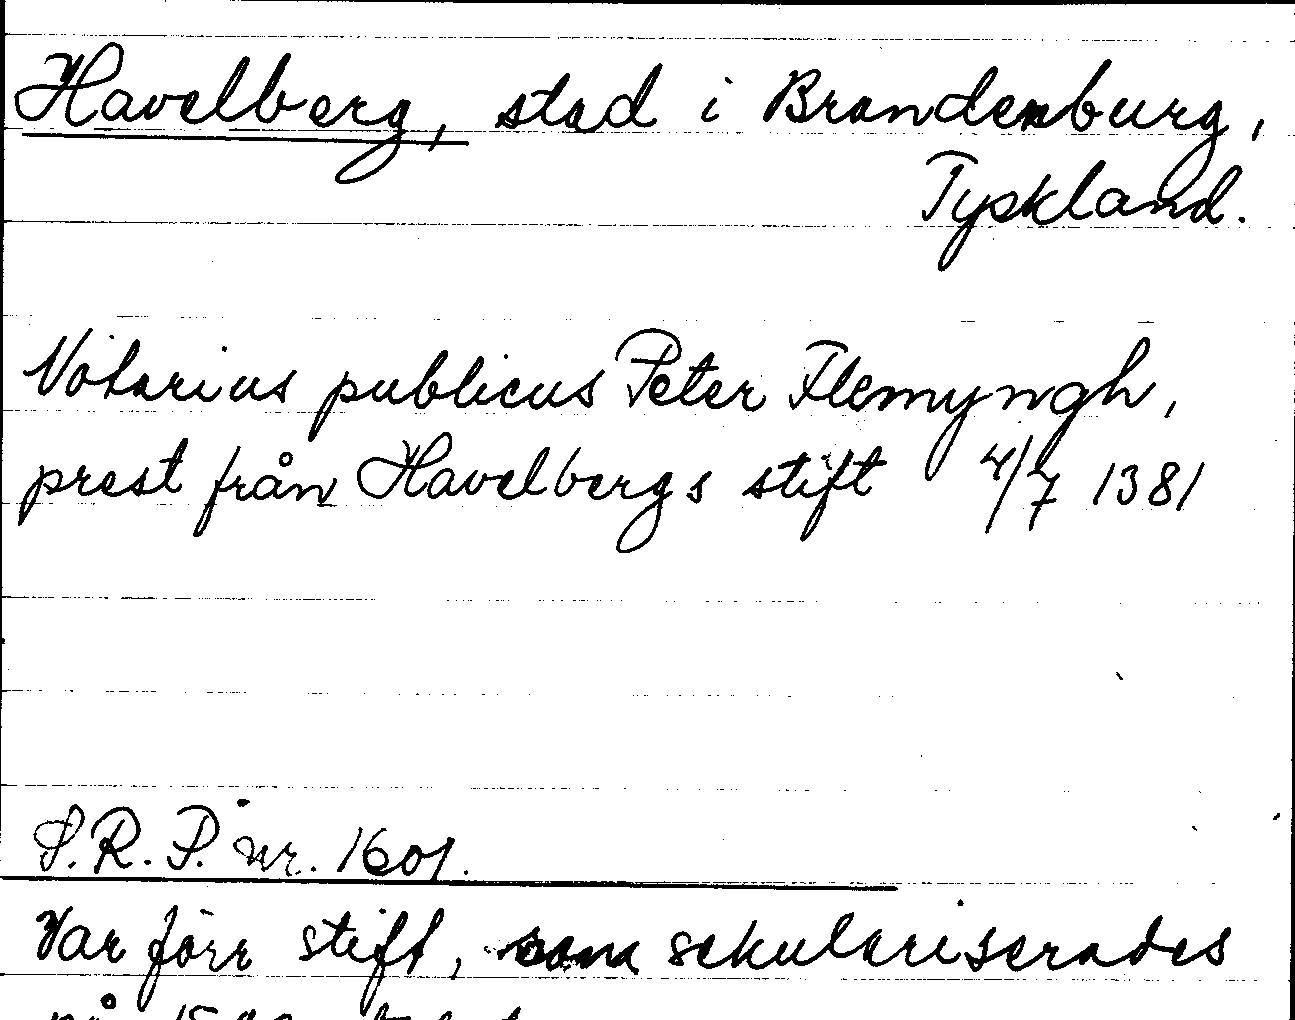 Havelberg, stad i Brandenburg,
Tyskland.
Notarius publicus Peter Flemyngh,
prest från Havelbergs stift 4/7 1381
S.R.P. nr. 1601.
Var förr stift, som sekulariserades
på 1500